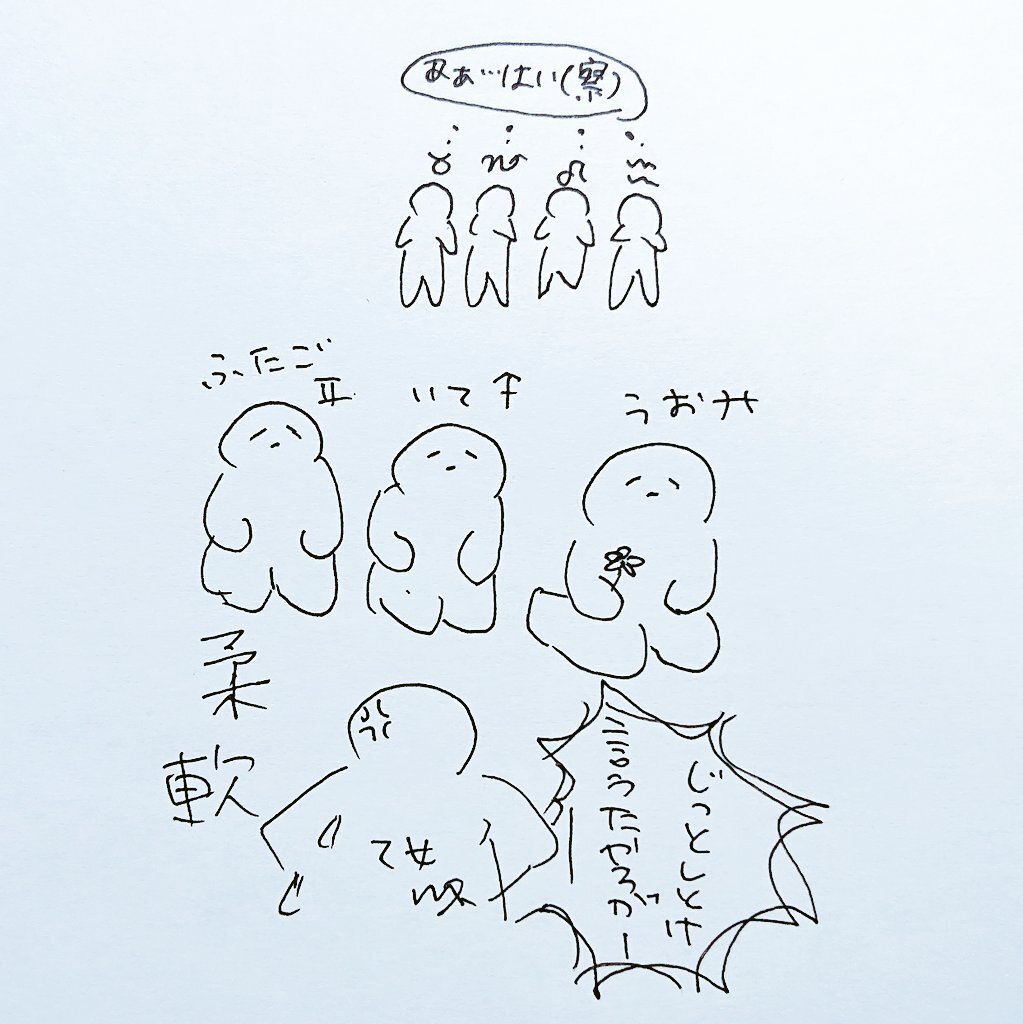 あぁ…はい(察)
♉ ♑ ♌ ♒
ふたご ♊
いて ♐
うお ♓
柔軟
乙女
♍
じっとしとけ
言うたやろがー